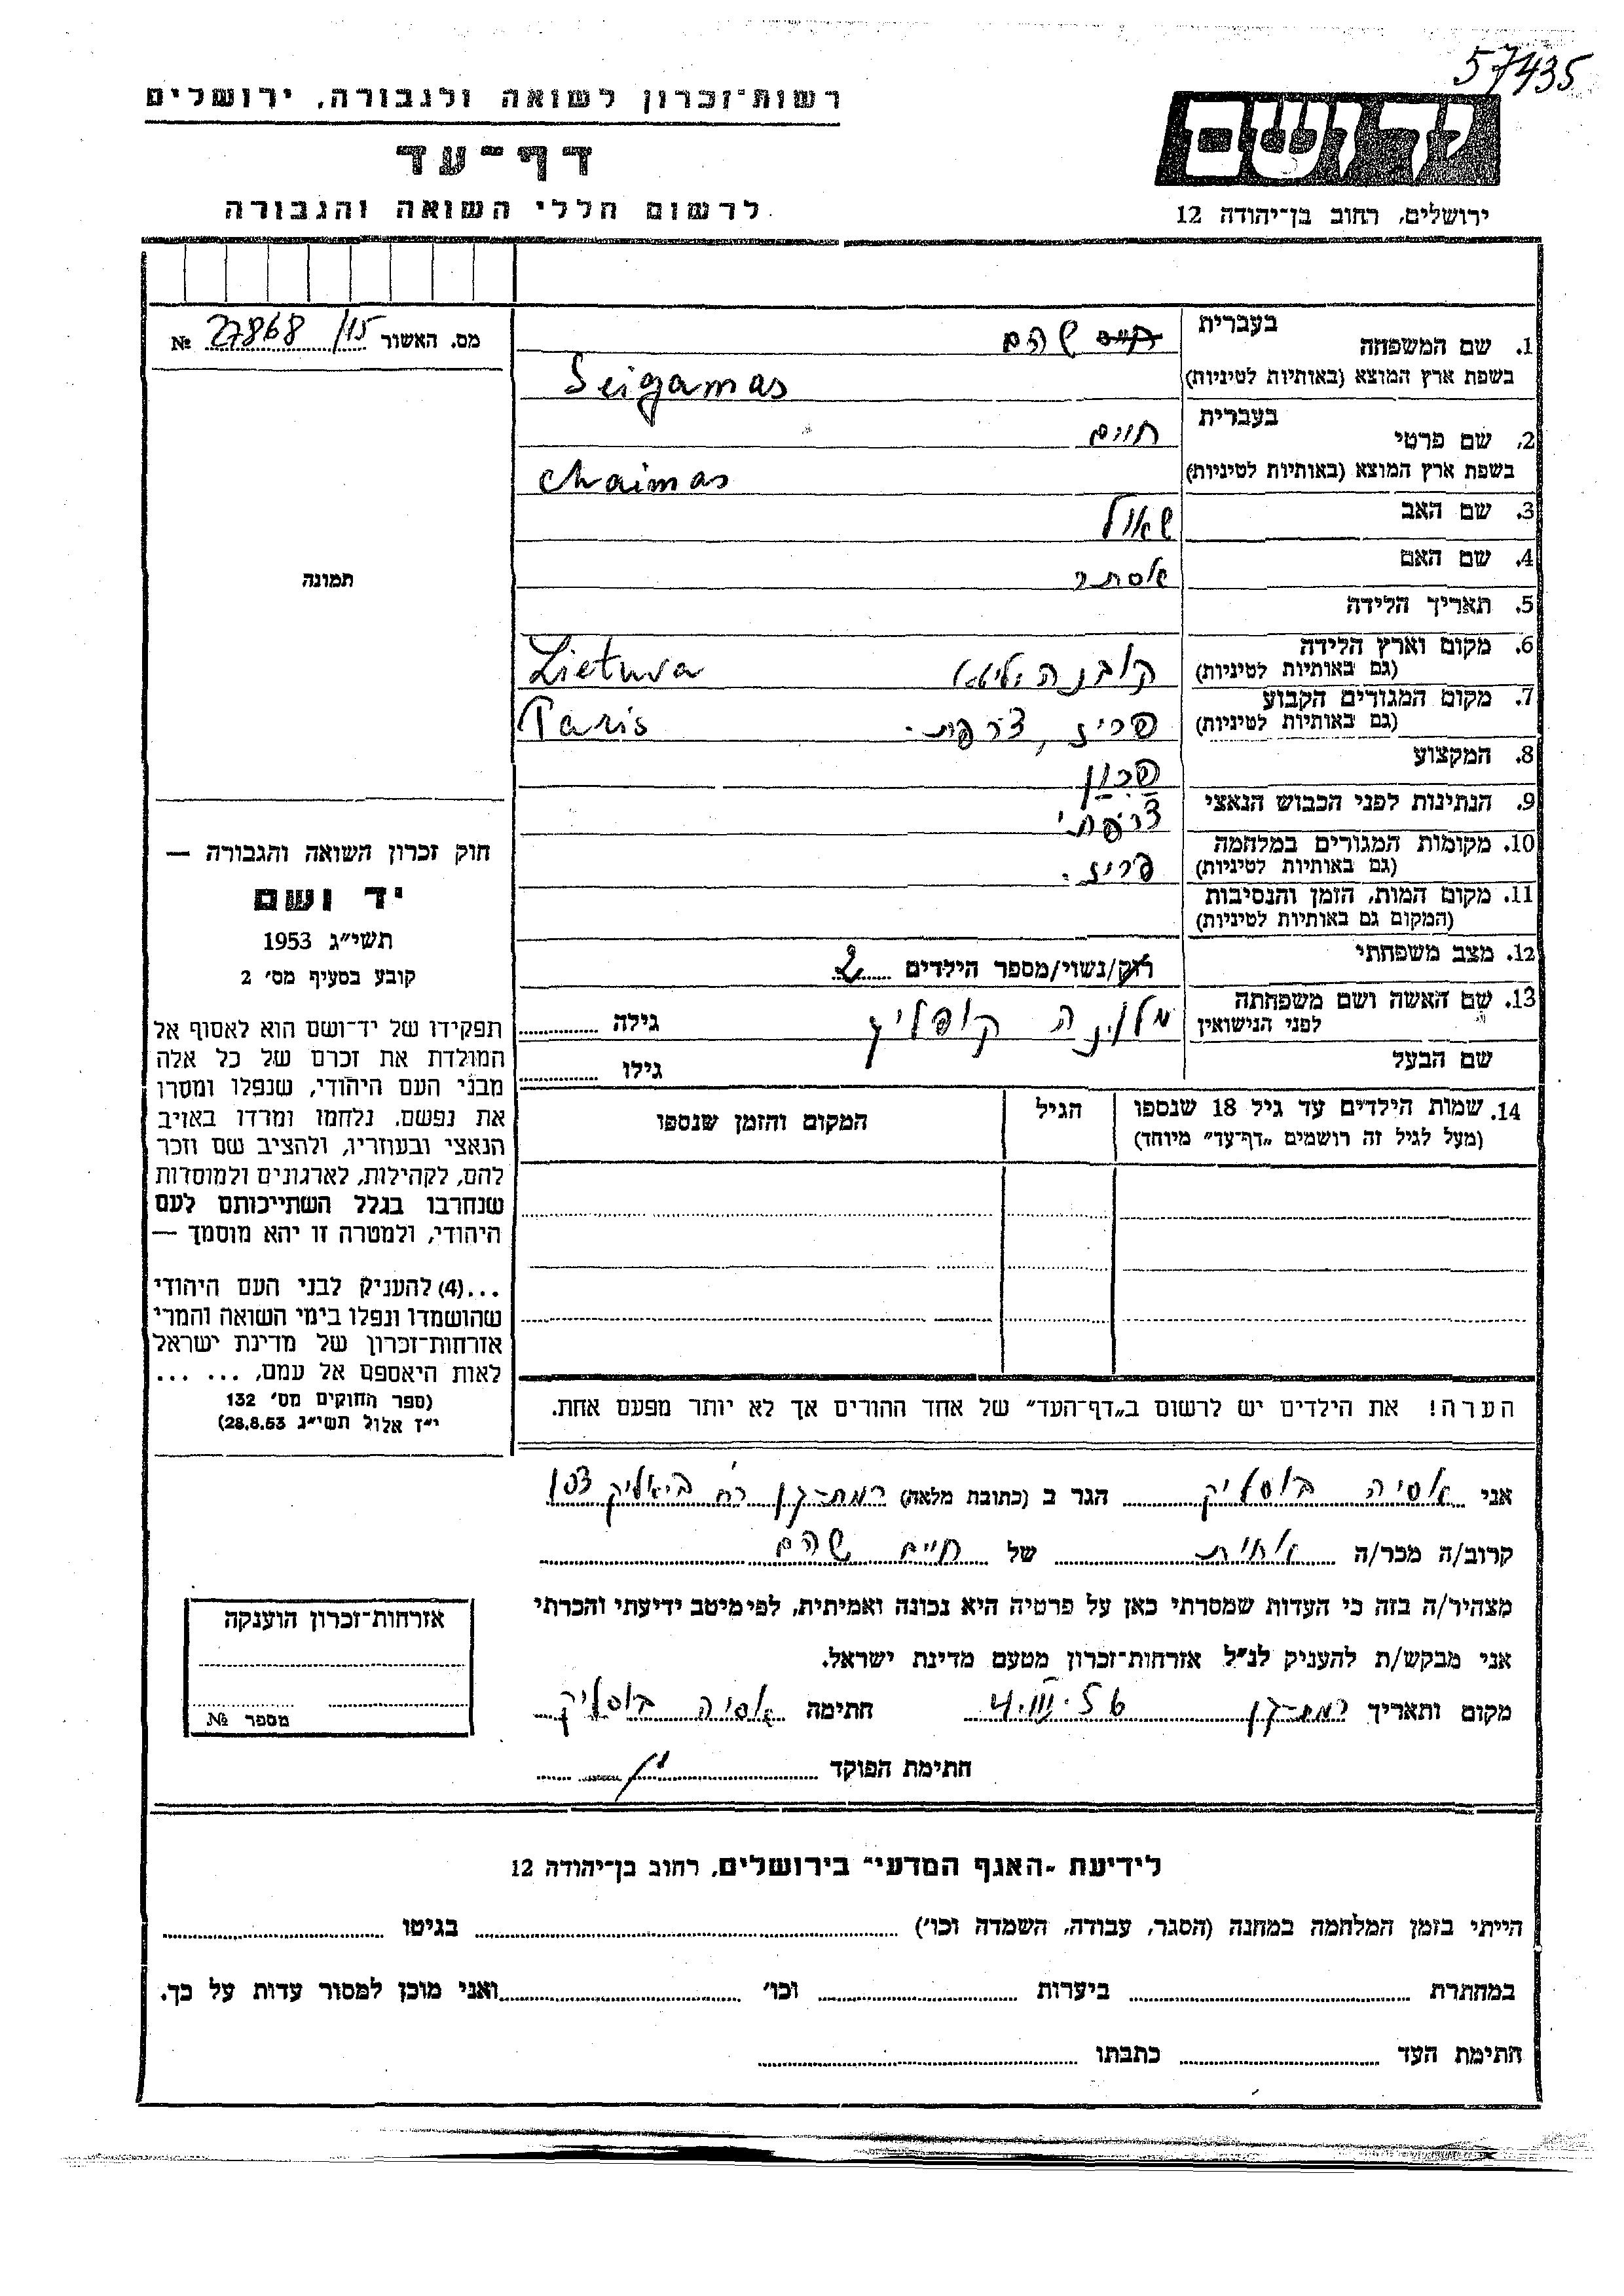 57435
יד ושם
ירושלים, רחוב בן־יהודה 12
רשות־זכרון לשואה ולגבורה, ירושלים
דף־עד
לרשום חללי השואה והגבורה
מס. האשור 27868/15 №
תמונה
חוק זכרון השואה והגבורה —
יד ושם
תשי״ג 1953
קובע בסעיף מס׳ 2
תפקידו של יד־ושם הוא לאסוף אל
המולדת את זכרם של כל אלה
מבני העם היהודי, שנפלו ומסרו
את נפשם, נלחמו ומרדו באויב
הנאצי ובעוזריו, ולהציב שם וזכר
להם, לקהילות, לארגונים ולמוסדות
שנחרבו בגלל השתייכותם לעם
היהודי, ולמטרה זו יהא מוסמך —
...(4) להעניק לבני העם היהודי
שהושמדו ונפלו בימי השואה והמרי
אזרחות־זכרון של מדינת ישראל
לאות היאספם אל עמם, ... ...
(ספר החוקים מס׳ 132
י״ז אלול תשי״ג 28.8.53)
1. שם המשפחה בעברית חיים שהם
בשפת ארץ המוצא (באותיות לטיניות) Seigamas
2. שם פרטי בעברית חיים
בשפת ארץ המוצא (באותיות לטיניות) Chaimas
3. שם האב שאול
4. שם האם אסתר
5. תאריך הלידה
6. מקום וארץ הלידה
(גם באותיות לטיניות) קובנה ליטא Lietuva
7. מקום המגורים הקבוע
(גם באותיות לטיניות) פריז, צרפת. Paris
8. המקצוע
9. הנתינות לפני הכבוש הנאצי צרפתי
10. מקומות המגורים במלחמה
(גם באותיות לטיניות) פריז.
11. מקום המות, הזמן והנסיבות
(המקום גם באותיות לטיניות)
12. מצב משפחתי רוק/נשוי/מספר הילדים 2
13. שם האשה ושם משפחתה
לפני הנישואין גילה
שם הבעל גילו
14. שמות הילדים עד גיל 18 שנספו
(מעל לגיל זה רושמים „דף־עד״ מיוחד)
הגיל
המקום והזמן שנספו
הערה! את הילדים יש לרשום ב„דף־העד״ של אחד ההורים אך לא יותר מפעם אחת.
אני אסיה בוסליק הגר ב (כתובת מלאה) רמת־גן רח׳ ביאליק 103
קרוב/ה מכר/ה אחות של חיים שהם
מצהיר/ה בזה כי העדות שמסרתי כאן על פרטיה היא נכונה ואמיתית, לפי מיטב ידיעתי והכרתי
אני מבקש/ת להעניק לנ״ל אזרחות־זכרון מטעם מדינת ישראל.
מקום ותאריך רמת־גן 4.III.56 חתימה אסיה בוסליק
חתימת הפוקד
אזרחות־זכרון הוענקה
מספר №
לידיעת „האגף המדעי״ בירושלים, רחוב בן־יהודה 12
הייתי בזמן המלחמה במחנה (הסגר, עבודה, השמדה וכו׳) בגיטו
במחתרת ביערות וכו׳ ואני מוכן למסור עדות על כך.
חתימת העד כתבתו